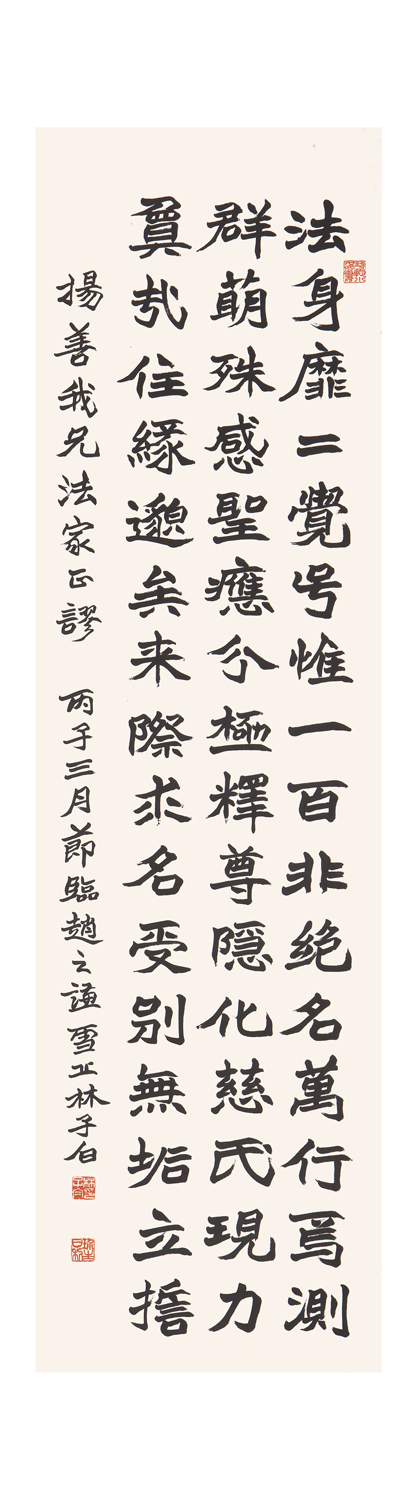 法身靡二覺号惟一百非絶名萬行焉測
群萠殊感聖應分極釋尊隱化慈氏現力
奠㢤住緣邈矣来際求名受別無垢立搭
揚善我兄法家正謬 丙子三月節臨趙之謙 雪丄林子白